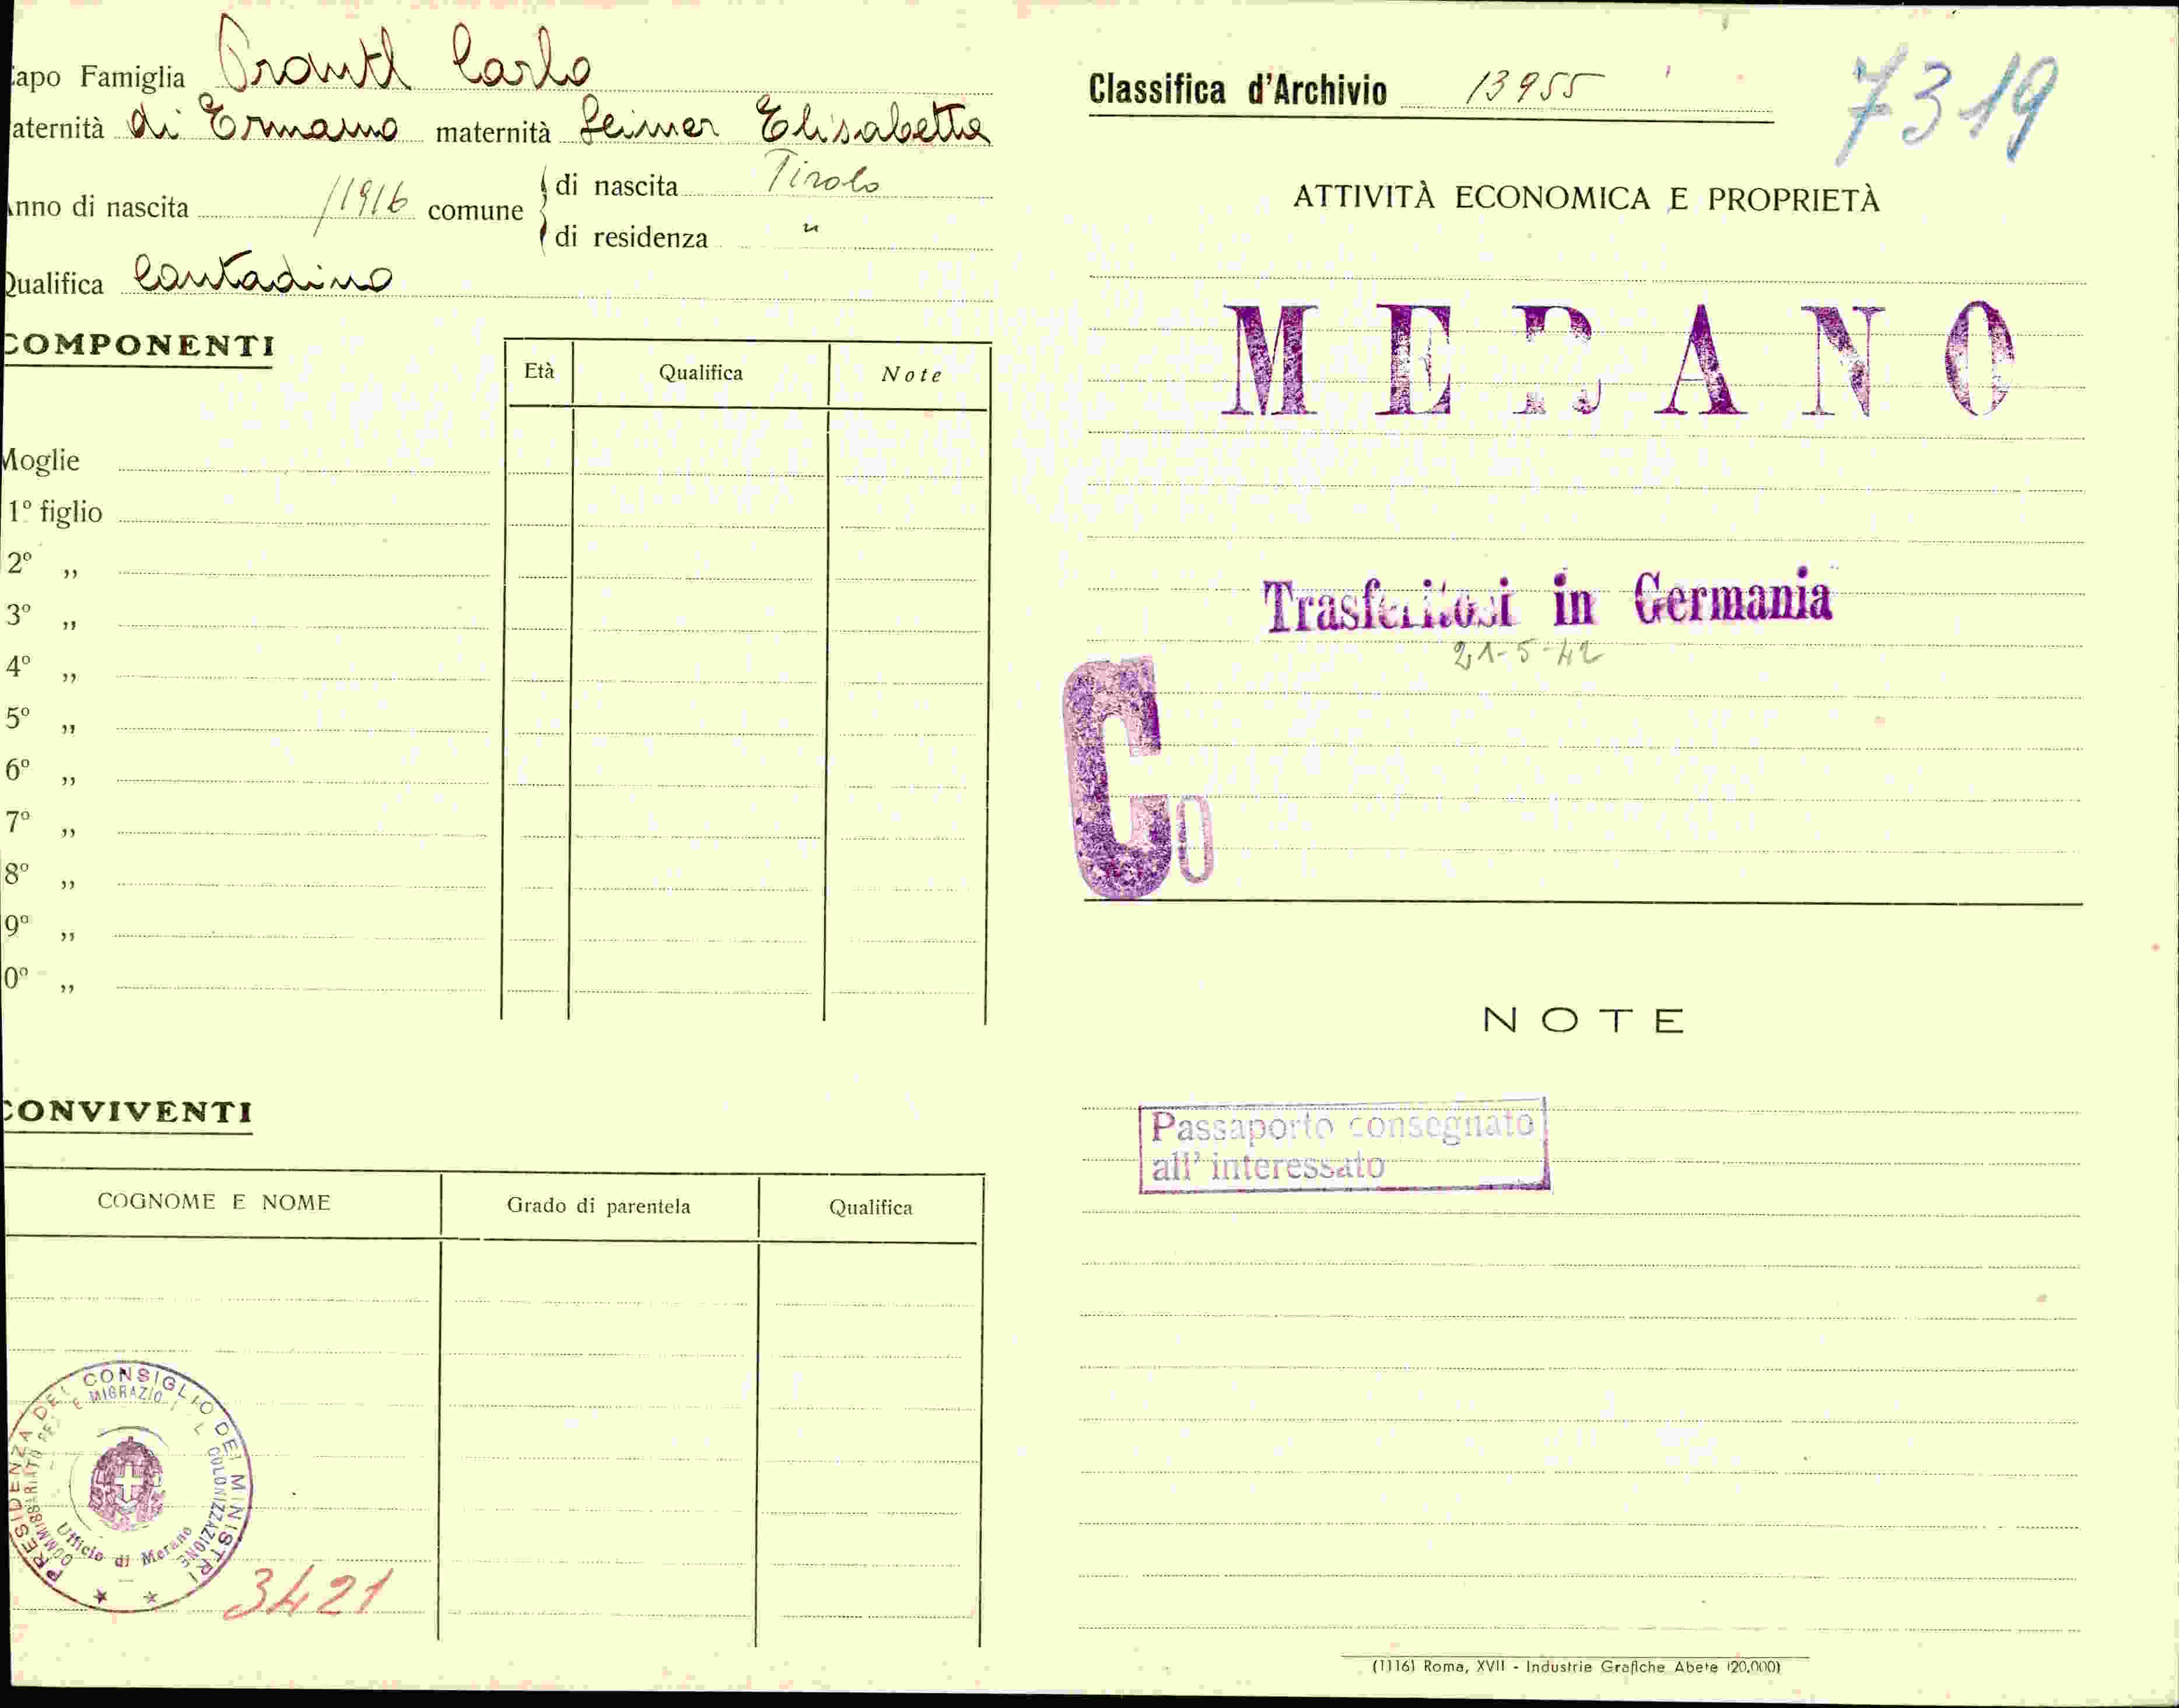 apo Famiglia Prantl Carlo
aternità di Ermanno maternità Leimer Elisabetta
nno di nascita /1916 comune di nascita Tirolo
di residenza "
Qualifica Contadino
COMPONENTI
Età Qualifica Note
Moglie
1º figlio
2º „
3º „
4º „
5º „
6º „
7º „
8º „
9º „
0º „
CONVIVENTI
COGNOME E NOME Grado di parentela Qualifica
PRESIDENZA DEL CONSIGLIO DEI MINISTRI
COMMISSARIATO PER LE MIGRAZIONI E LA COLONIZZAZIONE
Ufficio di Merano
3421
Classifica d'Archivio 13955
7319
ATTIVITÀ ECONOMICA E PROPRIETÀ
MERANO
Trasferitosi in Germania
21-5-42
C
0
NOTE
Passaporto consegnato
all' interessato
(1116) Roma, XVII - Industrie Grafiche Abete (20.000)